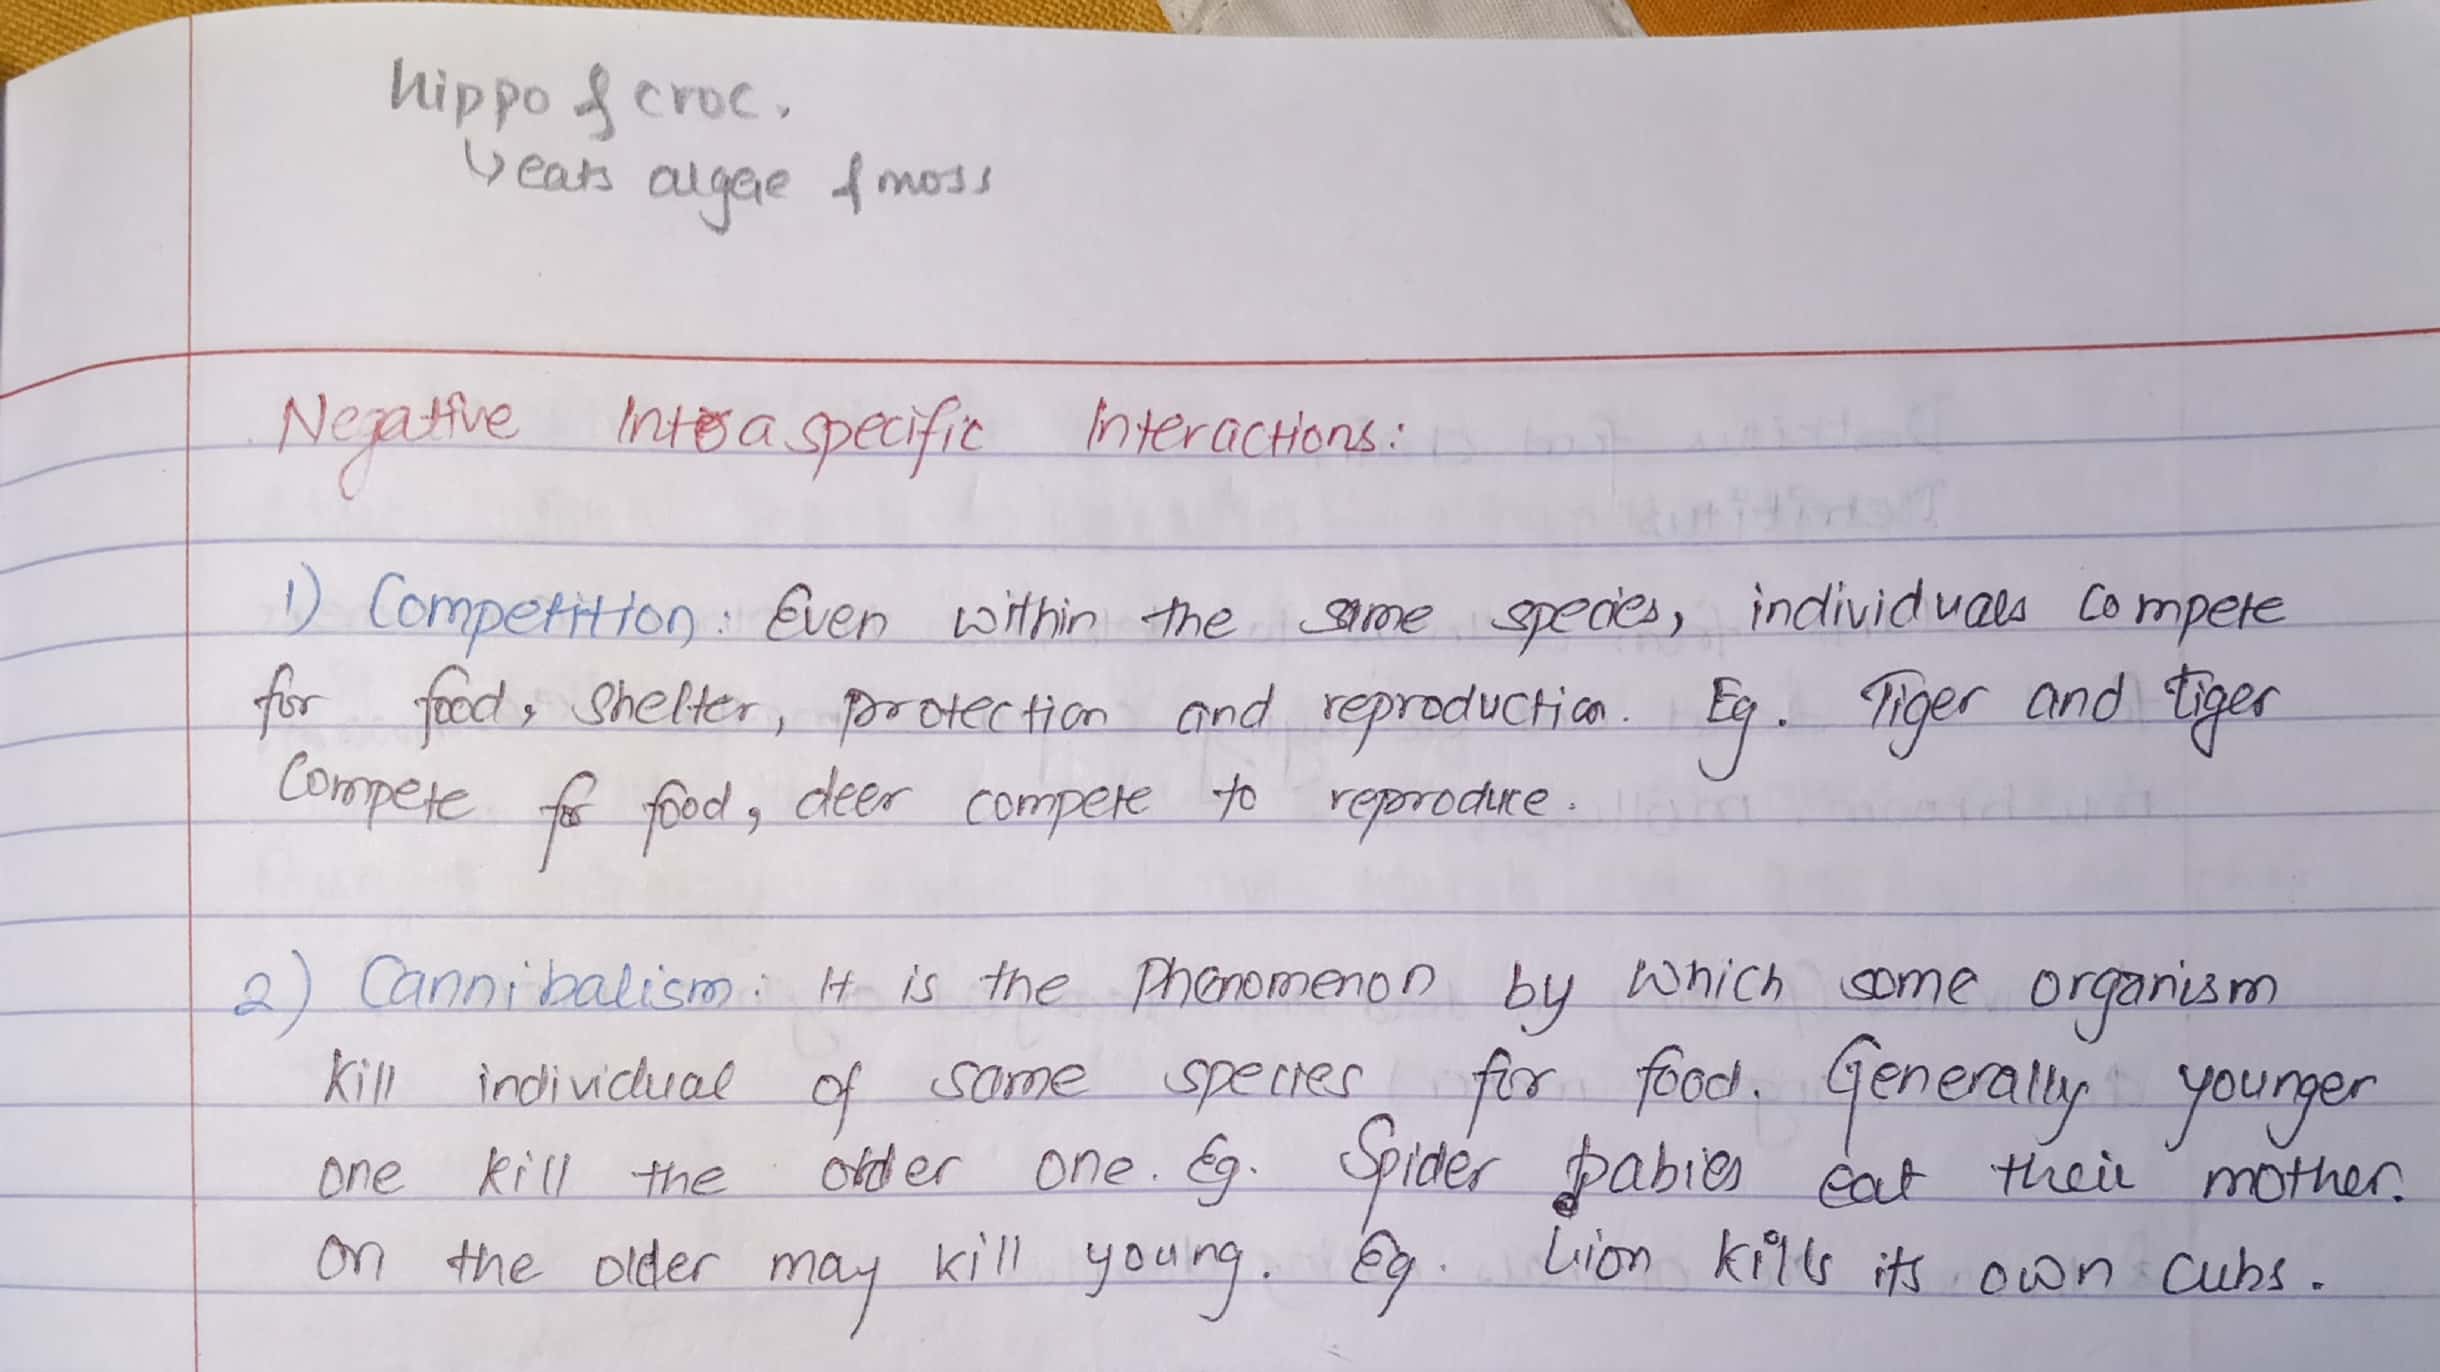 hippo & croc.
↳ eats algae & moss
Negative Intraspecific Interactions:
1) Competition: Even within the same species, individuals compete
for food, shelter, protection and reproduction. Eg. Tiger and tiger
Compete for food, deer compete to reproduce.
2) Cannibalism: It is the Phenomenon by which some organism
kill individual of same species for food. Generally younger
one kill the older one. Eg. Spider babies eat their mother.
On the older may kill young. Eg. Lion kills its own cubs.